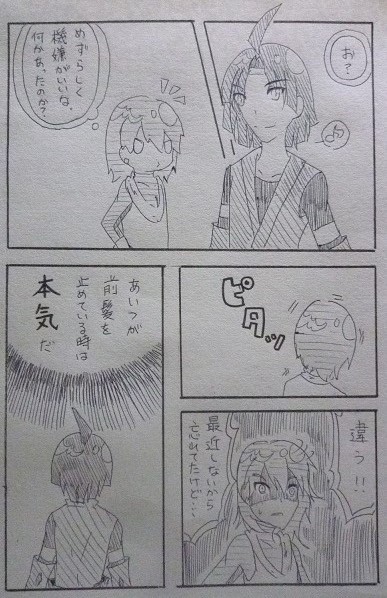 お?
めずらしく
機嫌がいいな、
何かあったのか?
ピタッ
違う!!
最近しないから
忘れてたけど…
あいつが
前髪を
止めている時は
本気だ